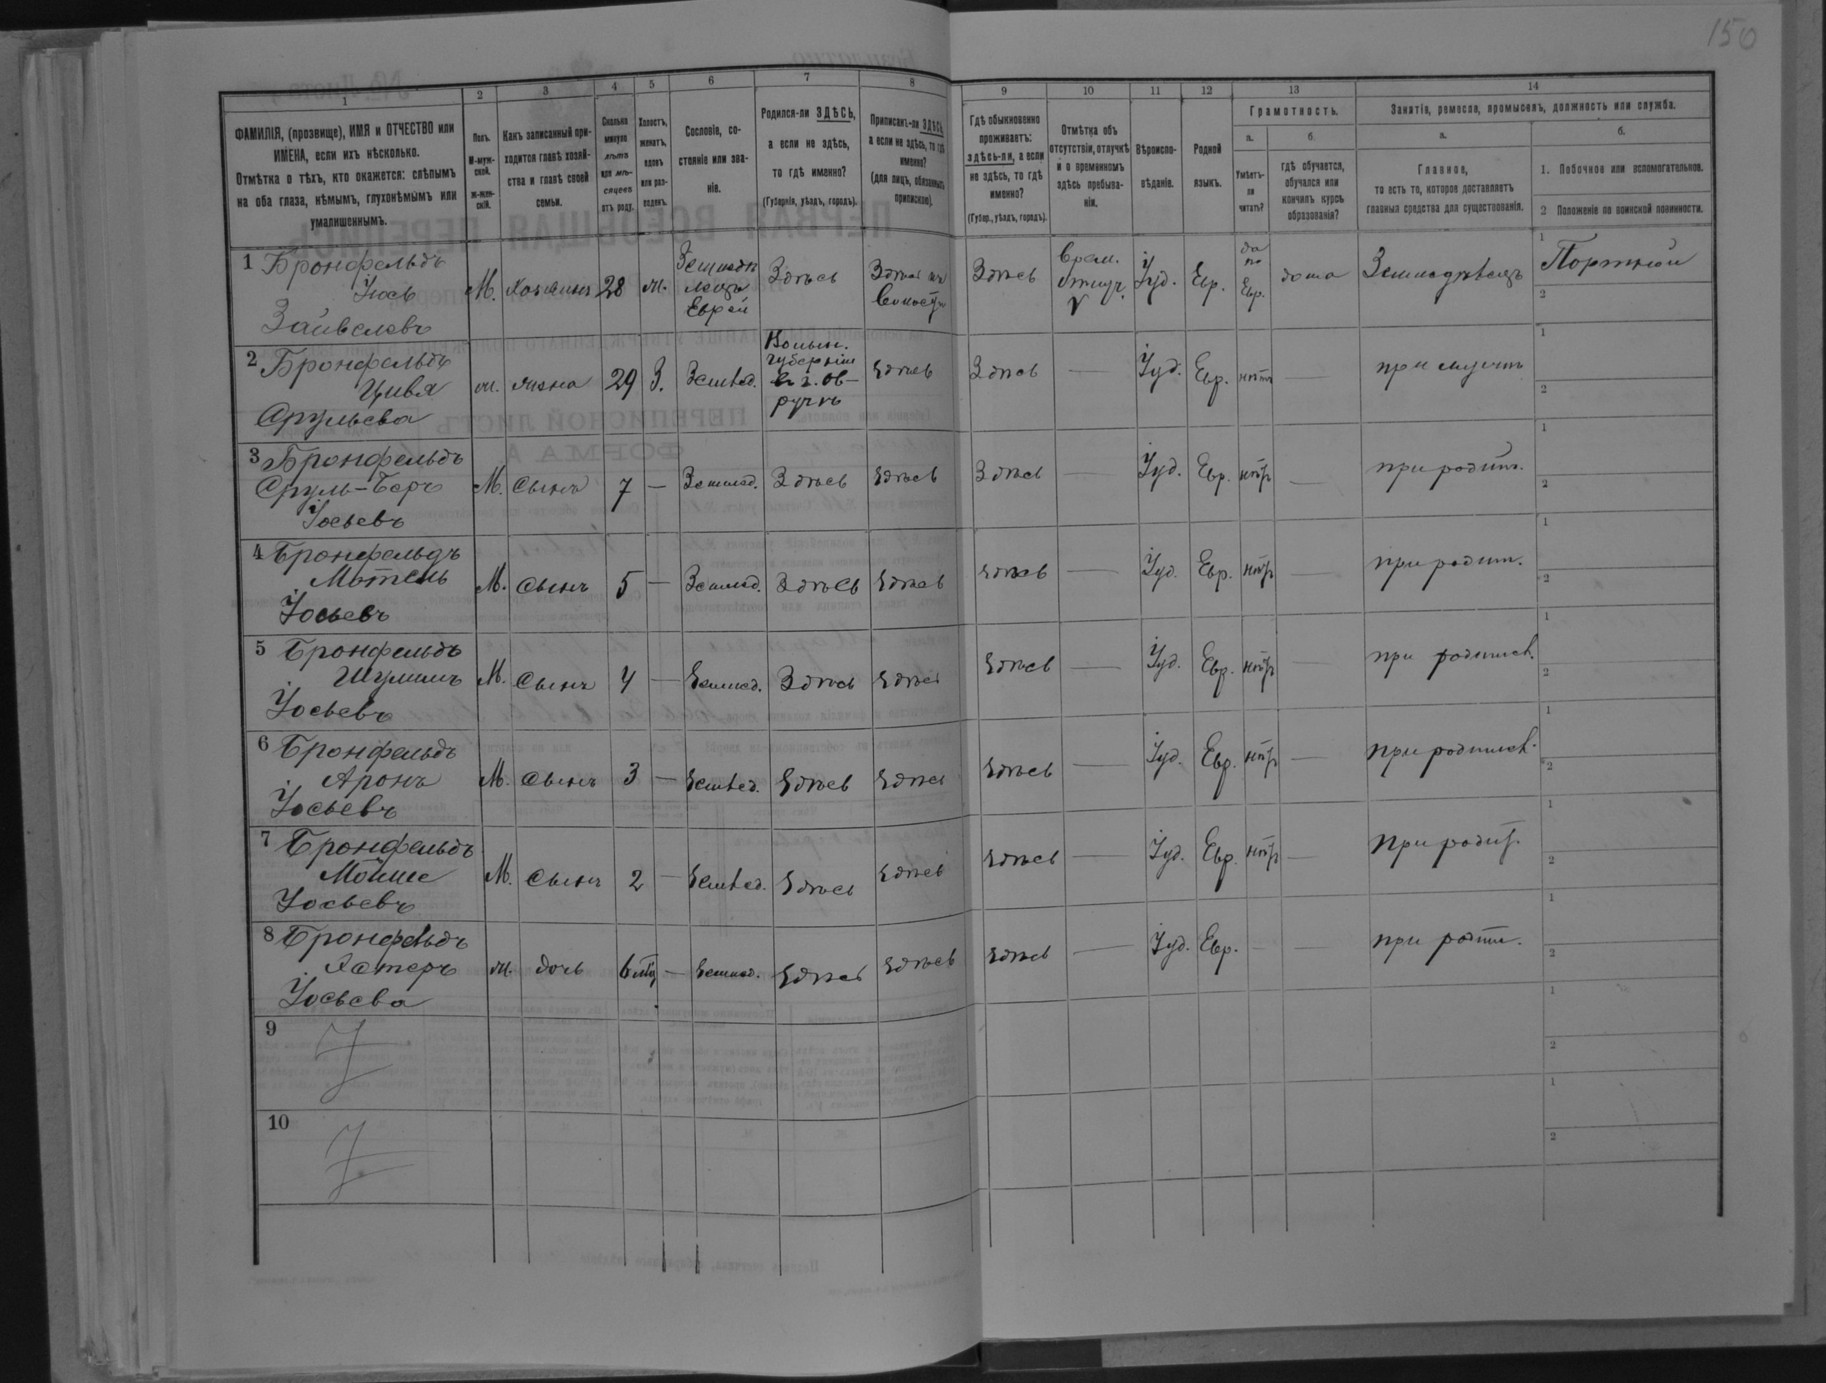 150
1 2 3 4 5 6 7 8 9 10 11 12 13 14
ФАМИЛІЯ, (прозвище), ИМЯ и ОТЧЕСТВО или
ИМЕНА, если ихъ нѣсколько.
Отмѣтка о тѣхъ, кто окажется: слѣпымъ
на оба глаза, нѣмымъ, глухонѣмымъ или
умалишеннымъ.
Полъ.
М-муж-
ской.
Ж-жен-
скій.
Какъ записанный при-
ходится главѣ хозяй-
ства и главѣ своей
семьи.
Сколько
минуло
лѣтъ
или мѣ-
сяцевъ
отъ роду.
Холостъ,
женатъ,
вдовъ
или раз-
веденъ.
Сословіе, со-
стояніе или зва-
ніе.
Родился-ли ЗДѢСЬ,
а если не здѣсь,
то гдѣ именно?
(Губернія, уѣздъ, городъ).
Приписанъ-ли ЗДѢСЬ,
а если не здѣсь, то гдѣ
именно?
(для лицъ, обязанныхъ
припискою).
Гдѣ обыкновенно
проживаетъ:
здѣсь-ли, а если
не здѣсь, то гдѣ
именно?
(Губер., уѣздъ, городъ).
Отмѣтка объ
отсутствіи, отлучкѣ
и о временномъ
здѣсь пребыва-
ніи.
Вѣроиспо-
вѣданіе.
Родной
языкъ.
Грамотность.
а.
Умѣетъ-
ли
читать?
б.
гдѣ обучается,
обучался или
кончилъ курсъ
образованія?
Занятіе, ремесло, промыселъ, должность или служба.
а.
Главное,
то есть то, которое доставляетъ
главныя средства для существованія.
б.
1. Побочное или вспомогательное.
2 Положеніе по воинской повинности.
1 Бронфельдъ
Іось
Зайвелевъ
М. Хозяинъ 28 ж. Здѣсь Здѣсь
Еврей
Здѣсь Врем. отлуч. Іуд. Евр. да по Евр. дома Земледѣлецъ
1 Портной
2
2 Бронфельдъ
Цивя
Срульева
ж. жена 29 З. Земвед. Волын.
губерніи
въ г. Ов-
ручѣ
Здѣсь Здѣсь — Іуд. Евр. нѣтъ — при мужѣ
1
2
3 Бронфельдъ
Сруль-Беръ
Іосьевъ
М. Сынъ 7 — Земвед. Здѣсь Здѣсь Здѣсь — Іуд. Евр. нѣтъ — при родит.
1
2
4 Бронфельдъ
Мотель
Іосьевъ
М. Сынъ 5 — Земвед. Здѣсь Здѣсь Здѣсь — Іуд. Евр. нѣтъ — при родит.
1
2
5 Бронфельдъ
Шулимъ
Іосьевъ
М. Сынъ 4 — Земвед. Здѣсь Здѣсь Здѣсь — Іуд. Евр. нѣтъ — при родител.
1
2
6 Бронфельдъ
Аронъ
Іосьевъ
М. Сынъ 3 — Земвед. Здѣсь Здѣсь Здѣсь — Іуд. Евр. нѣтъ — при родител.
1
2
7 Бронфельдъ
Мойше
Іосьевъ
М. Сынъ 2 — Земвед. Здѣсь Здѣсь Здѣсь — Іуд. Евр. нѣтъ — При родит.
1
2
8 Бронфельдъ
Эстеръ
Іосьева
ж. дочь — Земвед. Здѣсь Здѣсь Здѣсь — Іуд. Евр. — — при родит.
1
2
9
1
2
10
1
2